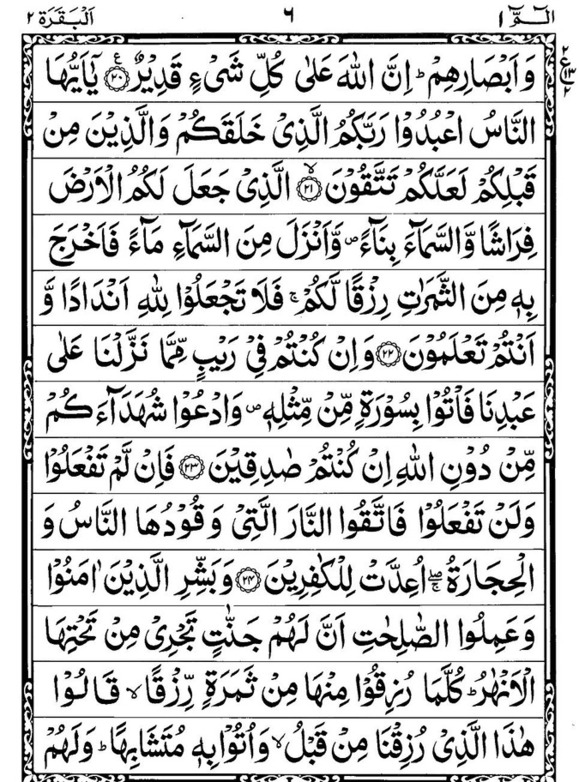 الٓـمّٓ ١ ٦ اَلْبَقَرَة ٢
وَاَبْصَارِهِمْ ؕ اِنَّ اللهَ عَلٰى كُلِّ شَىْءٍ قَدِيْرٌ ۟ع ﴿۲۰﴾ يٰۤاَيُّهَا
النَّاسُ اعْبُدُوْا رَبَّكُمُ الَّذِىْ خَلَقَكُمْ وَالَّذِيْنَ مِنْ
قَبْلِكُمْ لَعَلَّكُمْ تَتَّقُوْنَ ۙ﴿۲۱﴾ الَّذِىْ جَعَلَ لَكُمُ الْاَرْضَ
فِرَاشًا وَّالسَّمَآءَ بِنَآءً ۪ وَّاَنْزَلَ مِنَ السَّمَآءِ مَآءً فَاَخْرَجَ
بِهٖ مِنَ الثَّمَرٰتِ رِزْقًا لَّكُمْ ۚ فَلَا تَجْعَلُوْا لِلّٰهِ اَنْدَادًا وَّ
اَنْتُمْ تَعْلَمُوْنَ ﴿۲۲﴾ وَاِنْ كُنْتُمْ فِىْ رَيْبٍ مِّمَّا نَزَّلْنَا عَلٰى
عَبْدِنَا فَاْتُوْا بِسُوْرَةٍ مِّنْ مِّثْلِهٖ ۪ وَادْعُوْا شُهَدَآءَكُمْ
مِّنْ دُوْنِ اللهِ اِنْ كُنْتُمْ صٰدِقِيْنَ ﴿۲۳﴾ فَاِنْ لَّمْ تَفْعَلُوْا
وَلَنْ تَفْعَلُوْا فَاتَّقُوا النَّارَ الَّتِىْ وَقُوْدُهَا النَّاسُ وَ
الْحِجَارَةُ ۖۚ اُعِدَّتْ لِلْكٰفِرِيْنَ ﴿۲۴﴾ وَبَشِّرِ الَّذِيْنَ اٰمَنُوْا
وَعَمِلُوا الصّٰلِحٰتِ اَنَّ لَهُمْ جَنّٰتٍ تَجْرِىْ مِنْ تَحْتِهَا
الْاَنْهٰرُ ؕ كُلَّمَا رُزِقُوْا مِنْهَا مِنْ ثَمَرَةٍ رِّزْقًا ۙ قَالُوْا
هٰذَا الَّذِىْ رُزِقْنَا مِنْ قَبْلُ ۙ وَاُتُوْا بِهٖ مُتَشَابِهًا ؕ وَلَهُمْ